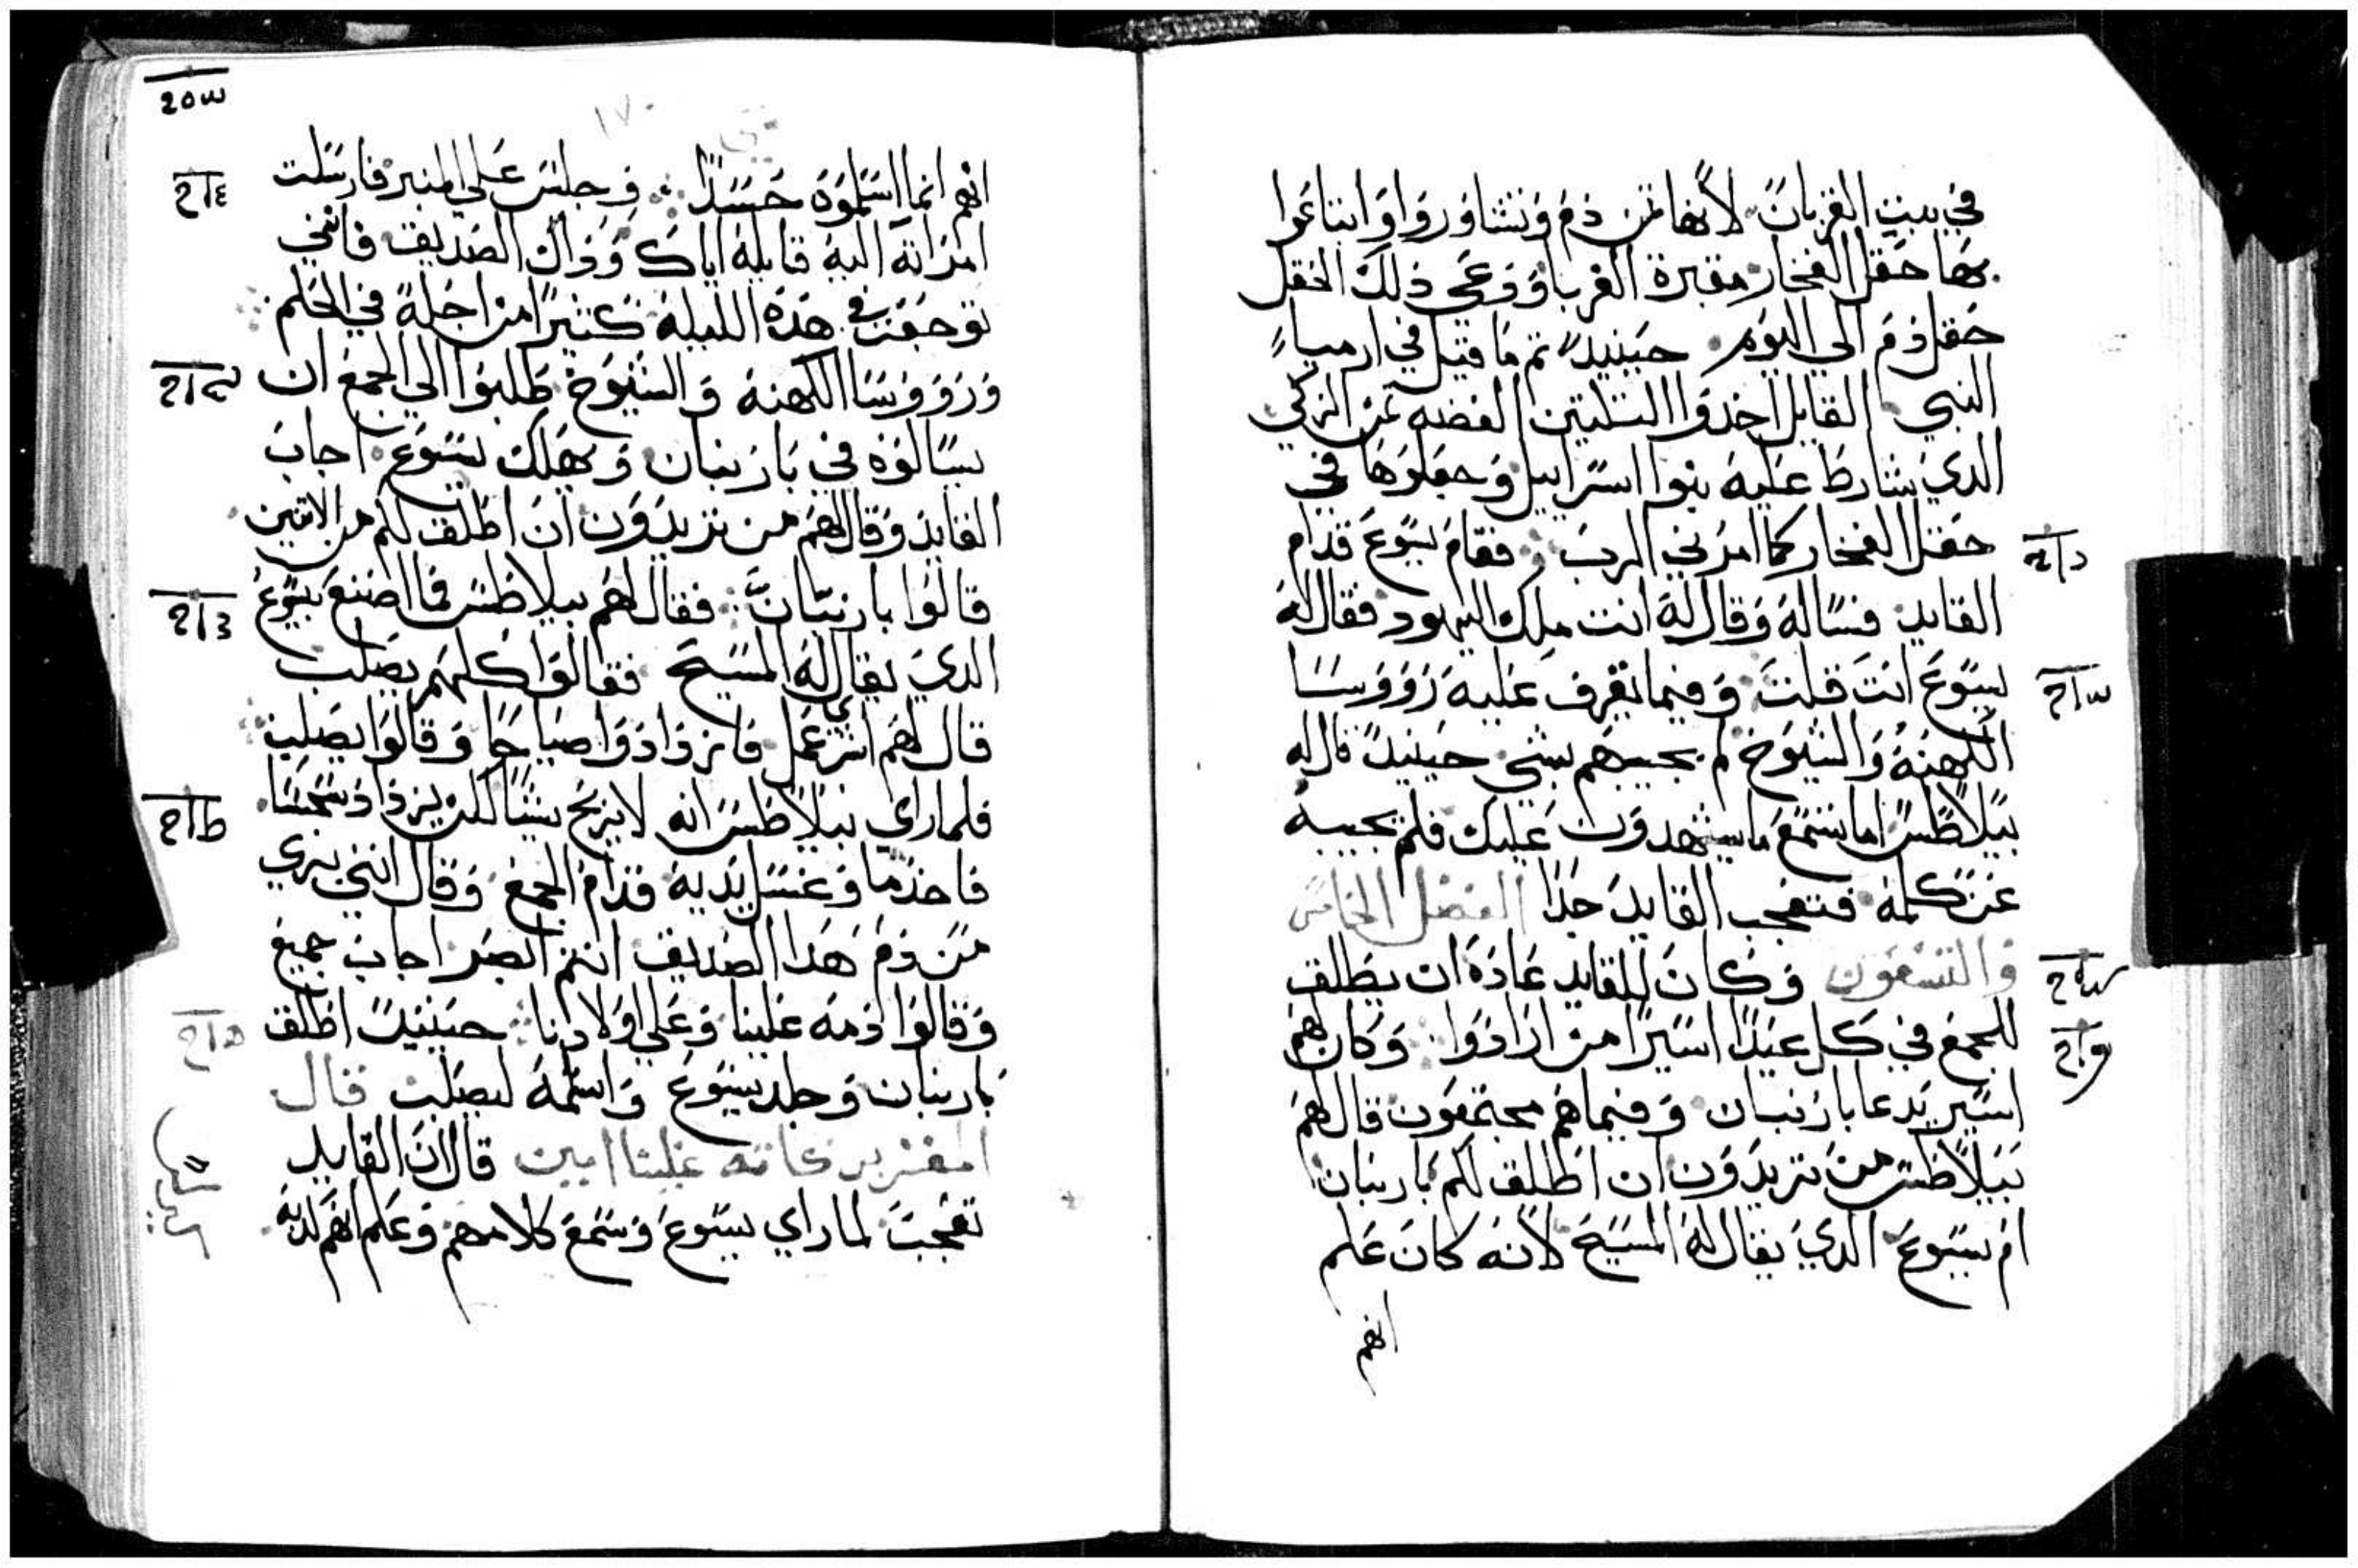 في بيت القربان لانها ثمن دم وتشاوروا وابتاعوا
بها حقل الفخار مقبرة الغربا ودعى ذلك الحقل
حقل دم الي اليوم حينيدً تم ما قيل في ارمياً
النبي القايل اخدوا التلتين الفضه ثمن الزكي
الدي شارط عليه بنوا اسراييل وجعلوها في
حقل الفخار كما امرني الرب فقام يسوع قدام
القايد فساله وقال له انت ملك اليهود فقال له
يسوع انت قلت وفيما تقرف عليه رووسا
الكهنه والشيوخ لم يجيبهم بشي حينيدً قال له
بيلاطس اما تسمع ما يشهدون عليك فلم يجيبه
عن كلمة فتعجب القايد جدا الفصل الخامس
والتسعون وكان للقايد عادة ان يطلق
للجمع في كل عيدا اسيرا من ارادوا وكان لهم
اسير يدعا باربنان وفيما هم مجتمعون قال لهم
بيلاطس من تريدون ان اطلق لكم باربنان
ام يسوع الدي يقال له المسيح لانه كان علم
انهم
١٧٠
انهم انما اسلموه حسدا وجلس علي المنبر فارسلت
امراته اليه قايلة اياك وداك الصديق فانني
توجعت في هده الليلة كثيرا من اجله في الحلم
ورووسا الكهنه والشيوخ طلبوا الي الجمع ان
يسالوه في باربنان ويهلك يسوع اجاب
القايد وقال لهم من تريدون ان اطلق لكم من الاتنين
قالوا باربنان فقال لهم بيلاطس فما اصنع بيسوع
الدي يقال له المسيح فقالوا كلهم يصلب
قال لهم اي شر عمل فازدادوا صياحا وقالوا يصلب
فلما راي بيلاطس انه لا يربح شيا لكن يزداد سجسا
فاخد ما وغسل يديه قدام الجمع وقال انني بري
من دم هدا الصديق انتم ابصر اجاب جميع
وقالوا دمه علينا وعلي اولادنا حينيدً اطلق
باربنان وجلد يسوع واسلمه ليصلب قال
المفسر بركاته علينا امين قال ان القايد
تعجب لما راي يسوع وسمع كلامهم وعلم انهم لديه